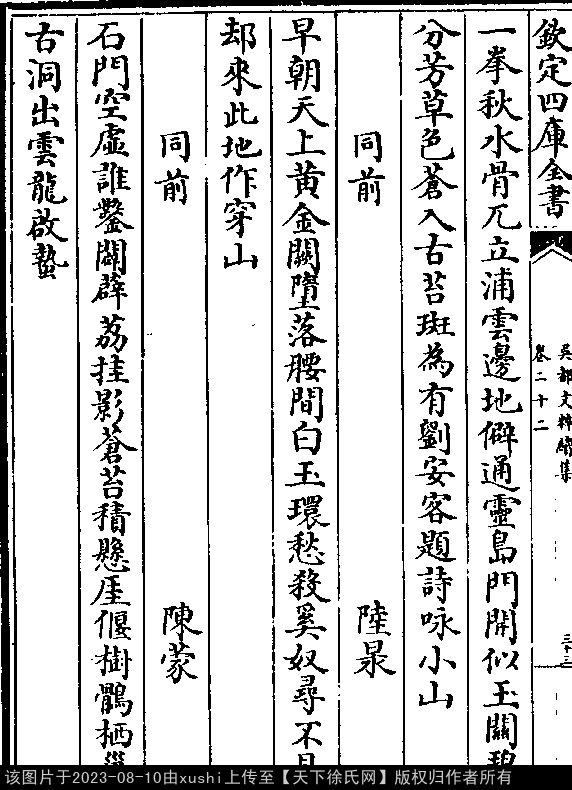 欽定四庫全書
吳都文粹續集
卷二十二
三十三
一拳秋水骨兀立浦雲邊地僻通靈島門開似玉關碧
分芳草色蒼入古苔斑為有劉安客題詩咏小山
同前 陸杲
早朝天上黃金闕墮落腰間白玉環愁殺奚奴尋不見
却來此地作穿山
同前 陳蒙
石門空虛誰鑿闢薜荔挂影蒼苔積懸厓偃樹鶻栖
古洞出雲龍啟蟄
该图片于2023-08-10由xushi上传至【天下徐氏网】版权归作者所有